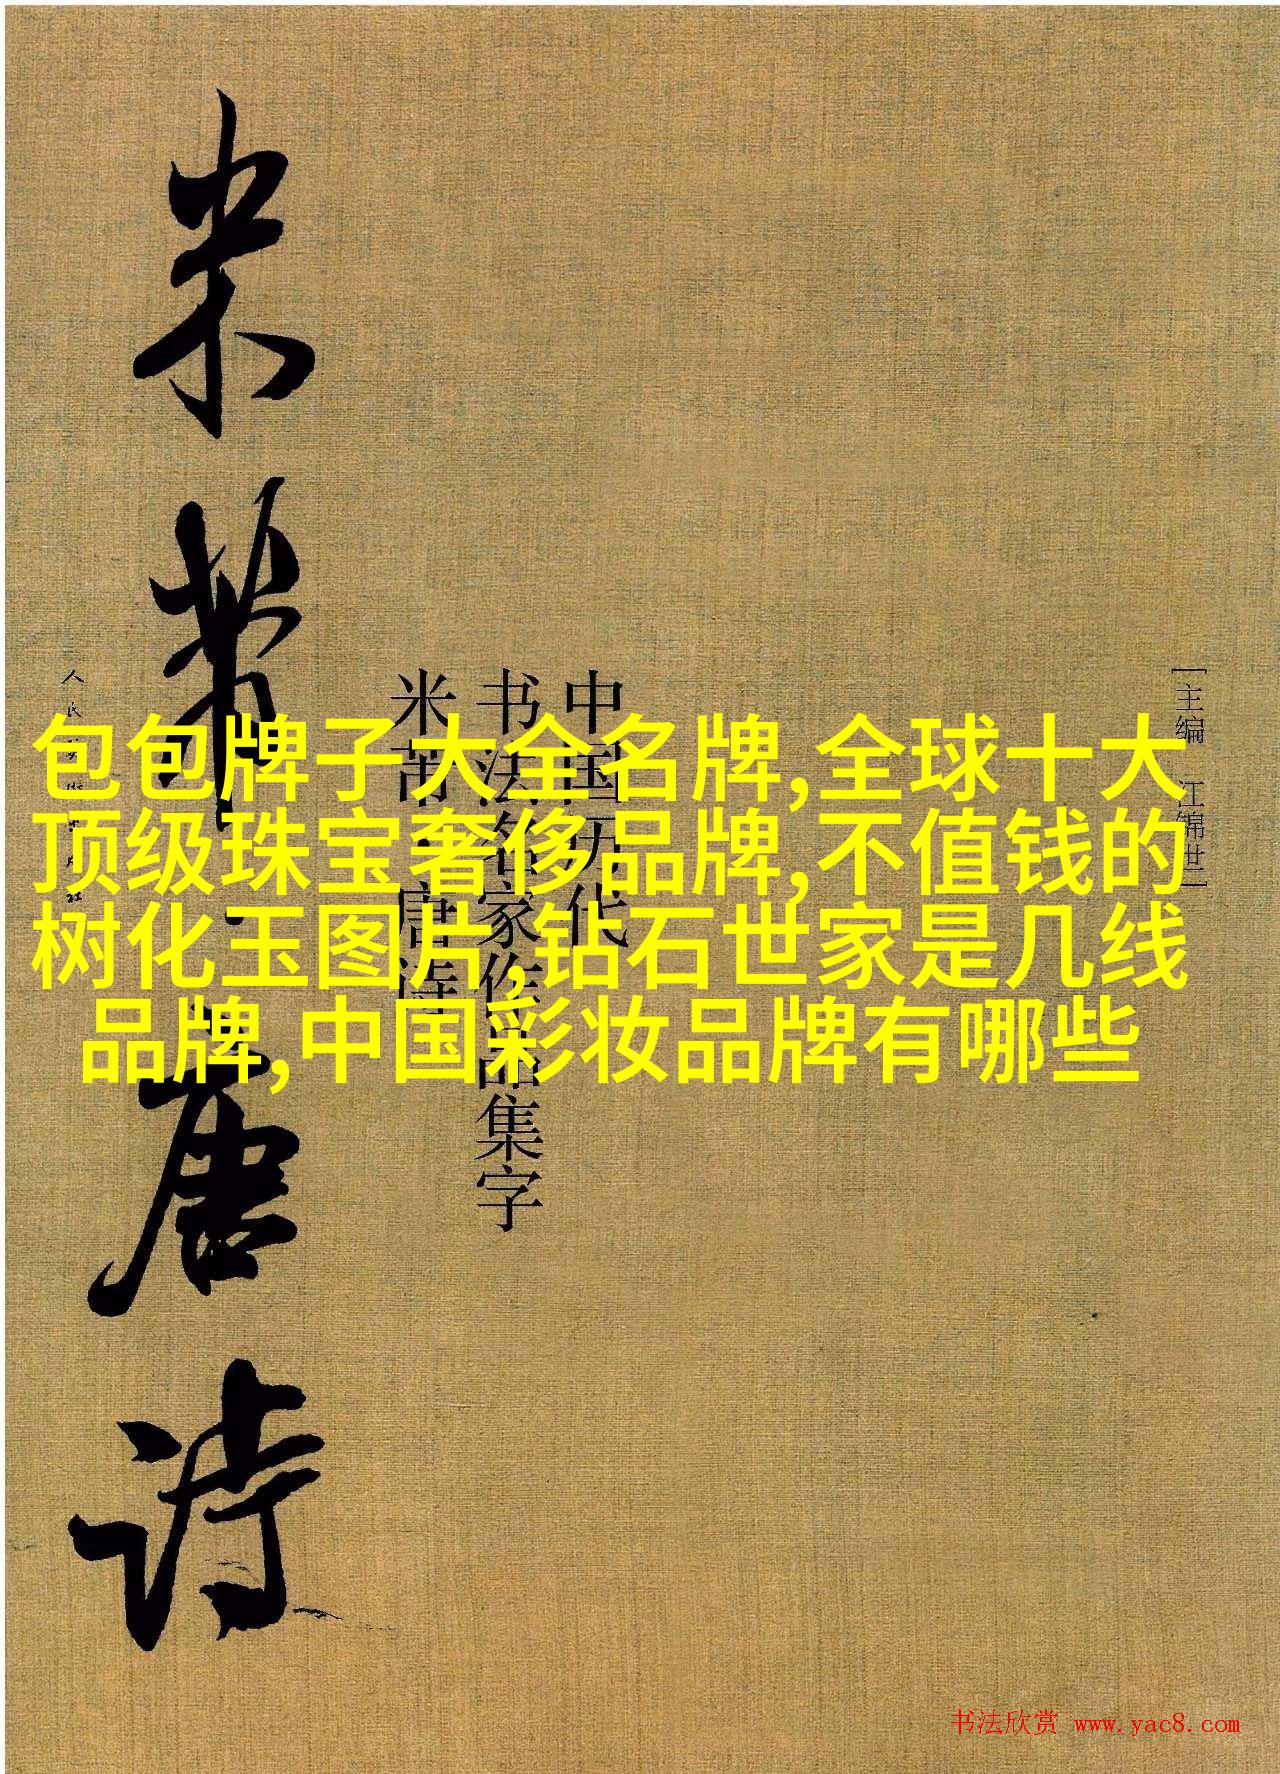 包包牌子大全名牌,全球十大
顶级珠宝奢侈品牌,不值钱的
树化玉图片,钻石世家是几线
品牌,中国彩妆品牌有哪些
[主编 江锦世]
中国历代
书法名家作品集字
米芾 唐诗
米芾·唐诗
书法欣赏 www.yac8.com